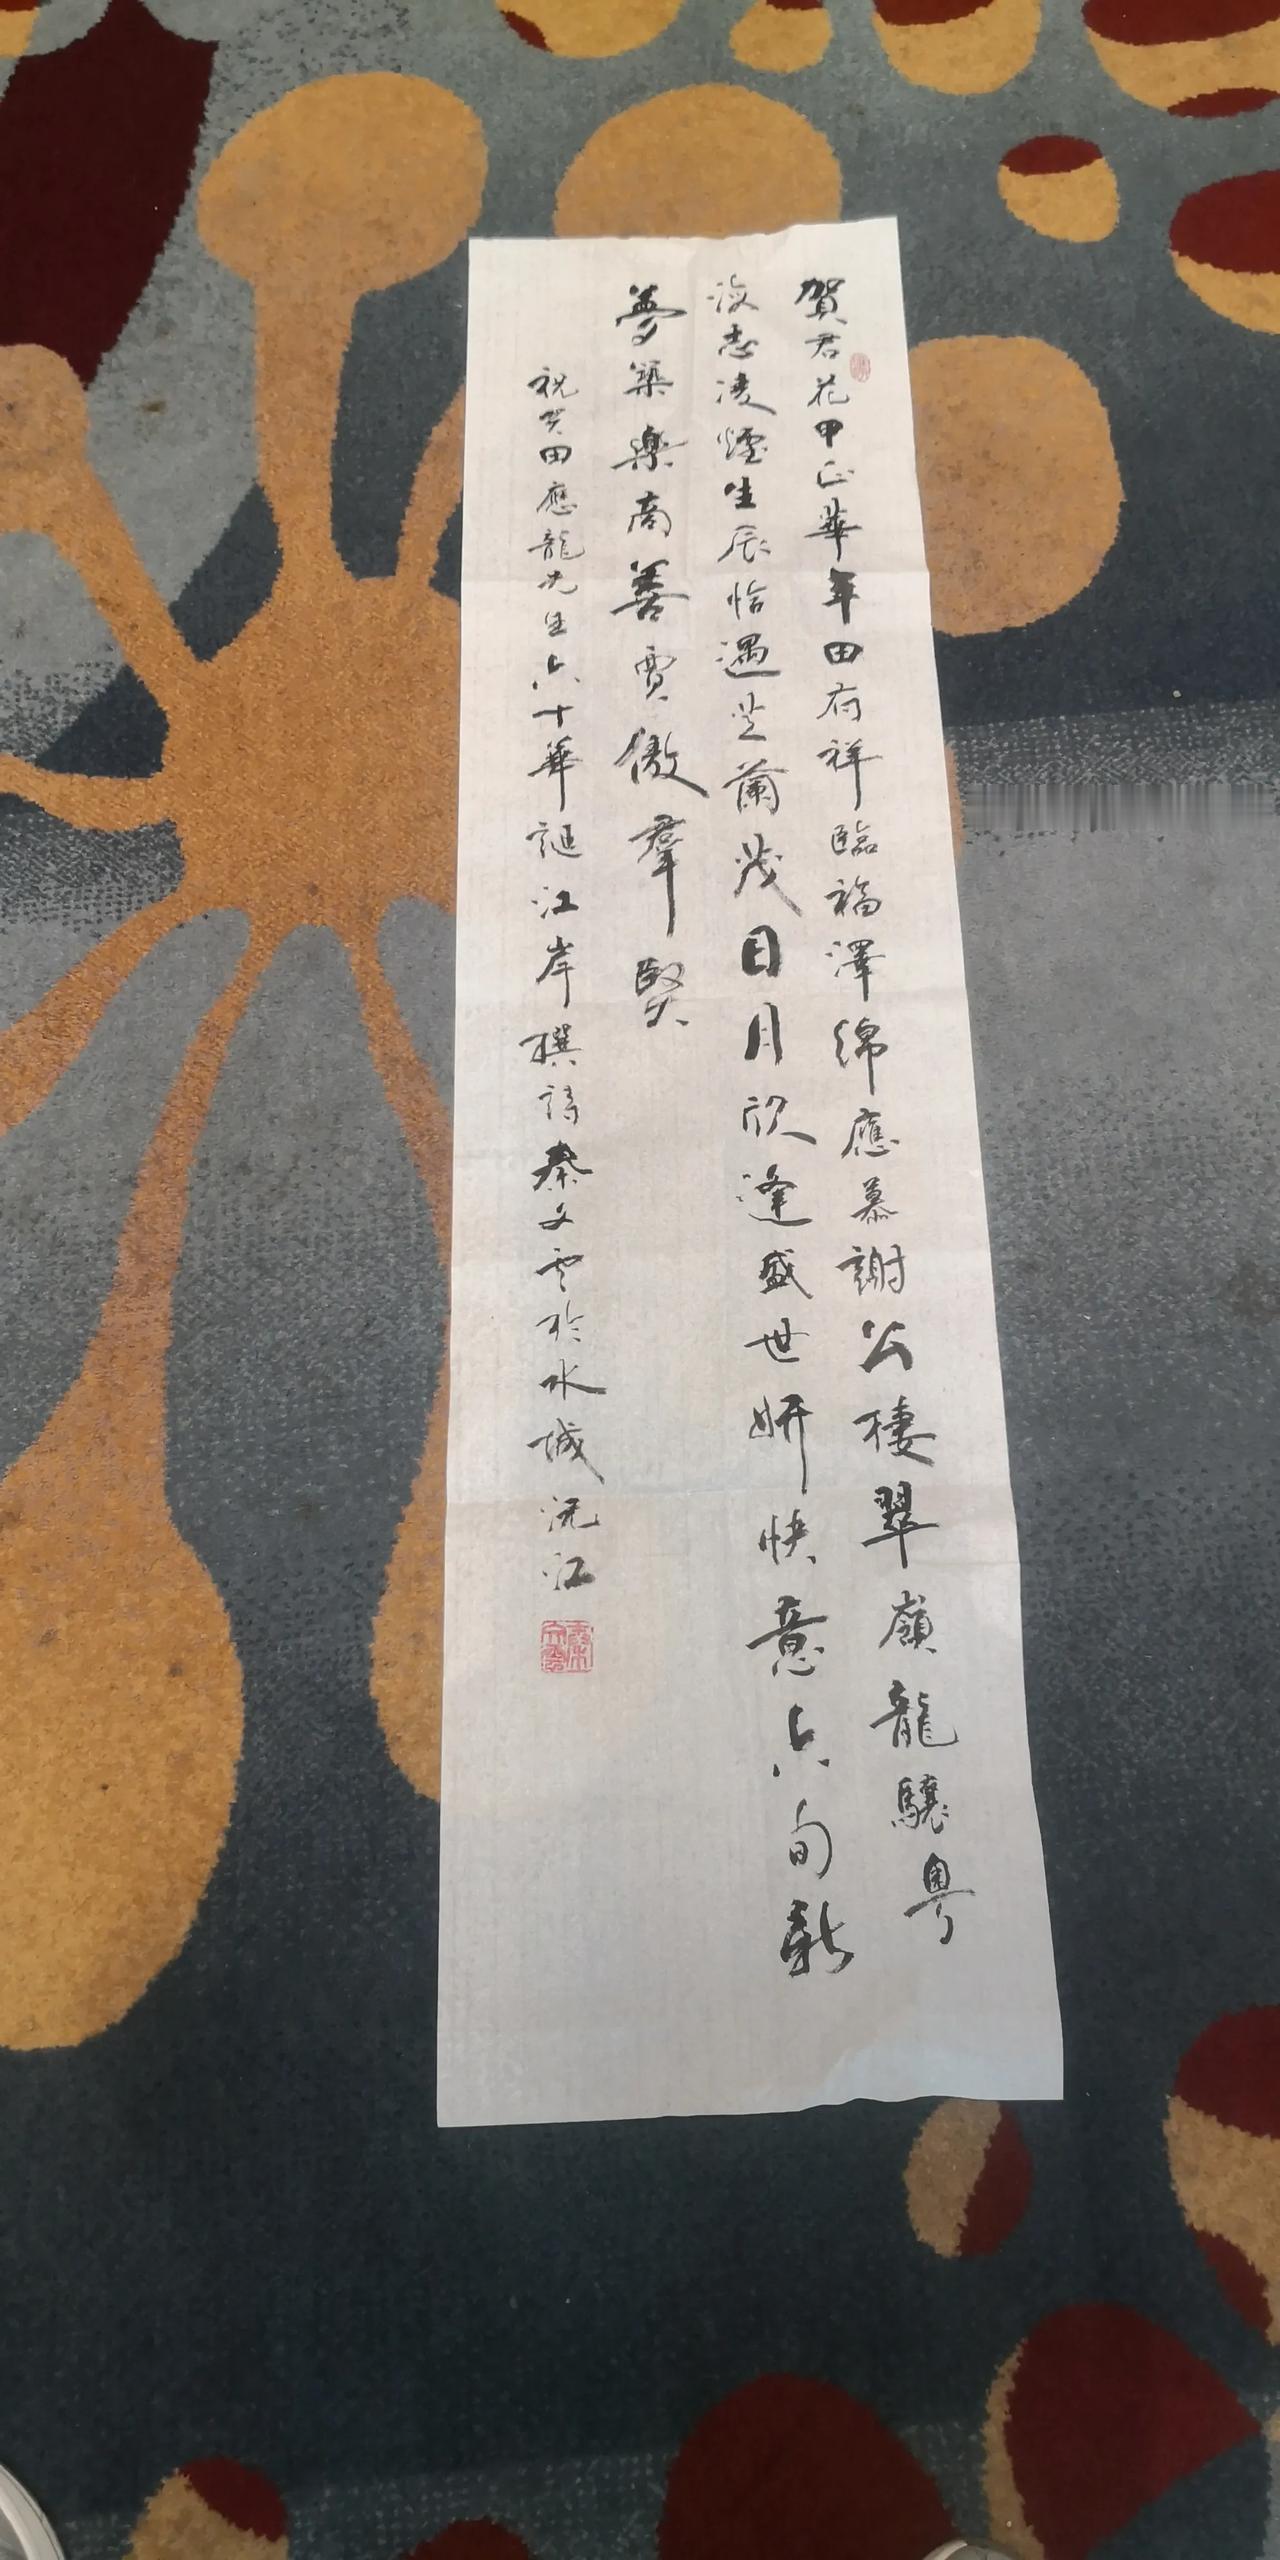 賀君花甲正華年田府祥臨福澤綿應慕謝公棲翠嶺龍驤粵
海志凌煙生辰恰遇芝蘭茂日月欣逢盛世妍快意六旬新
夢築樂商善賈傲羣賢
祝賀田應龍先生六十華誕江岸撰詩秦文雲於水城沅江